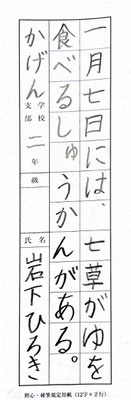 一月七日には、七草がゆを
食べるしゅうかんがある。
学校
支部
かげん
二年
級
氏名
岩下ひろき
照心・硬筆規定用紙（12字×2行）